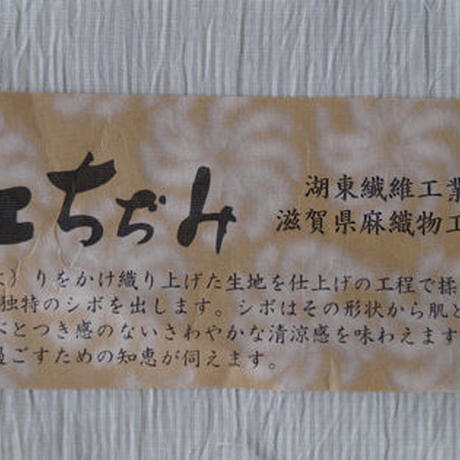 江ちぢみ
湖東繊維工業
滋賀県麻織物工
り）りをかけ織り上げた生地を仕上げの工程で揉
独特のシボを出します。シボはその形状から肌と
べとつき感のないさわやかな清涼感を味わえます
過ごすための知恵が伺えます。